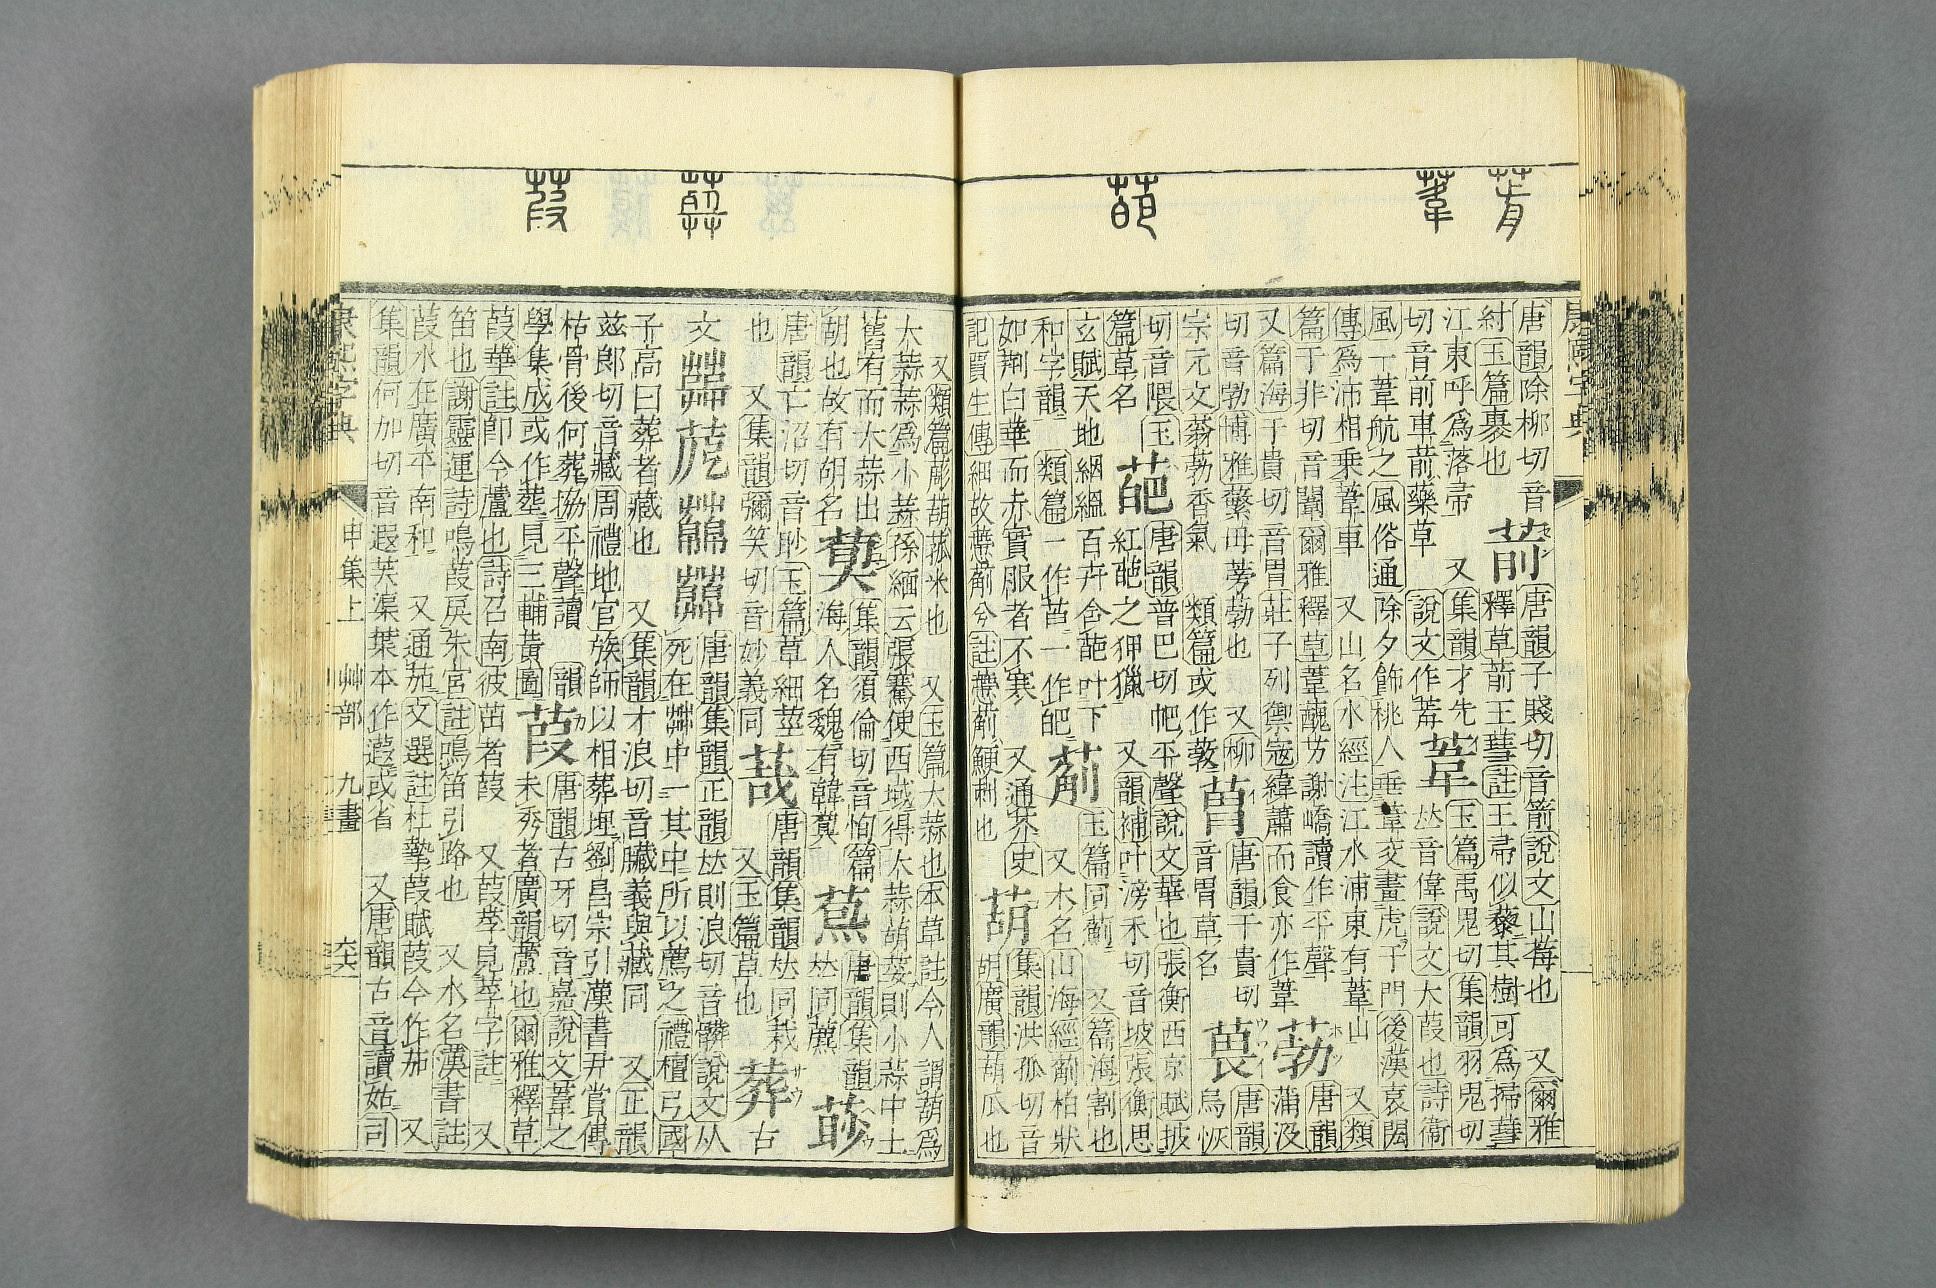 康熙字典
唐韻除柳切音
紂玉篇裹也
葥
唐韻子賤切音箭說文山莓也 又爾雅
釋草葥王蔧註王帚似藜其樹可為掃蔧
江東呼為落帚 又集韻才先
切音前車葥藥草 說文作
葦
玉篇禹鬼切集韻羽鬼切
𠀤音偉說文大葭也詩衞
風一葦航之風俗通除夕飾桃人垂葦茭畫虎于門後漢袁閎
傳為沛相乗葦車 又山名水經注江水浦東有葦山 又類
篇于非切音闈爾雅釋草葦醜芀謝嶠讀作平聲
又篇海于貴切音胃莊子列禦寇緯蕭而食亦作葦
葧
ホツ
唐韻
蒲没
切音勃博雅蘩母蒡葧也 又柳
宗元文蓊葧香氣 類篇或作
唐韻于貴切
音胃草名
葨
ウワイ
唐韻
烏恢
切音隈玉
篇草名
葩
唐韻普巴切帊平聲說文華也張衡西京賦披
紅葩之狎獵 又韻補叶滂禾切音坡張衡思
玄賦天地絪縕百卉含葩叶下
和字韻 類篇一作芭一作皅
葪
玉篇同薊 又篇海割也
又木名山海經葪柏狀
如荊白華而赤實服者不寒 又通芥史
記賈生傳細故慸葪兮註慸葪鯁刺也
葫
集韻洪孤切音
胡廣韻葫瓜也
又類篇彫葫菰米也 又玉篇大蒜也本草註今人謂葫為
大蒜蒜為小蒜孫緬云張騫使西域得大蒜葫荽則小蒜中土
舊有而大蒜出
胡也故有胡名
集韻須倫切音恂篇
海人名魏有韓
唐韻集韻
𠀤同藨
唐韻亡沼切音眇玉篇草細莖
也 又集韻彌笑切音妙義同
唐韻集韻𠀤同栽
又玉篇草也
葬
サウ
古
文
唐韻集韻正韻𠀤則浪切音髒說文从
死在茻中一其中所以薦之禮檀弓國
子高曰葬者藏也 又集韻才浪切音臟義與藏同 又正韻
茲郎切音臧周禮地官族師以相葬埋劉昌宗引漢書尹賞傳
枯骨後何葬協平聲讀 韻
學集成或作塟見三輔黃圖
葭
カ
唐韻古牙切音嘉說文葦之
未秀者廣韻蘆也爾雅釋草
葭華註卽今蘆也詩召南彼茁者葭 又葭莩見莩字註 又
笛也謝靈運詩鳴葭戾朱宮註鳴笛引路也 又水名漢書註
葭水在廣平南和 又通茄文選註杜摯葭賦葭今作茄 又
集韻何加切音遐芙渠葉本作蕸或省 又唐韻古音讀姑司
康熙字典
申集上 艸部 九畫